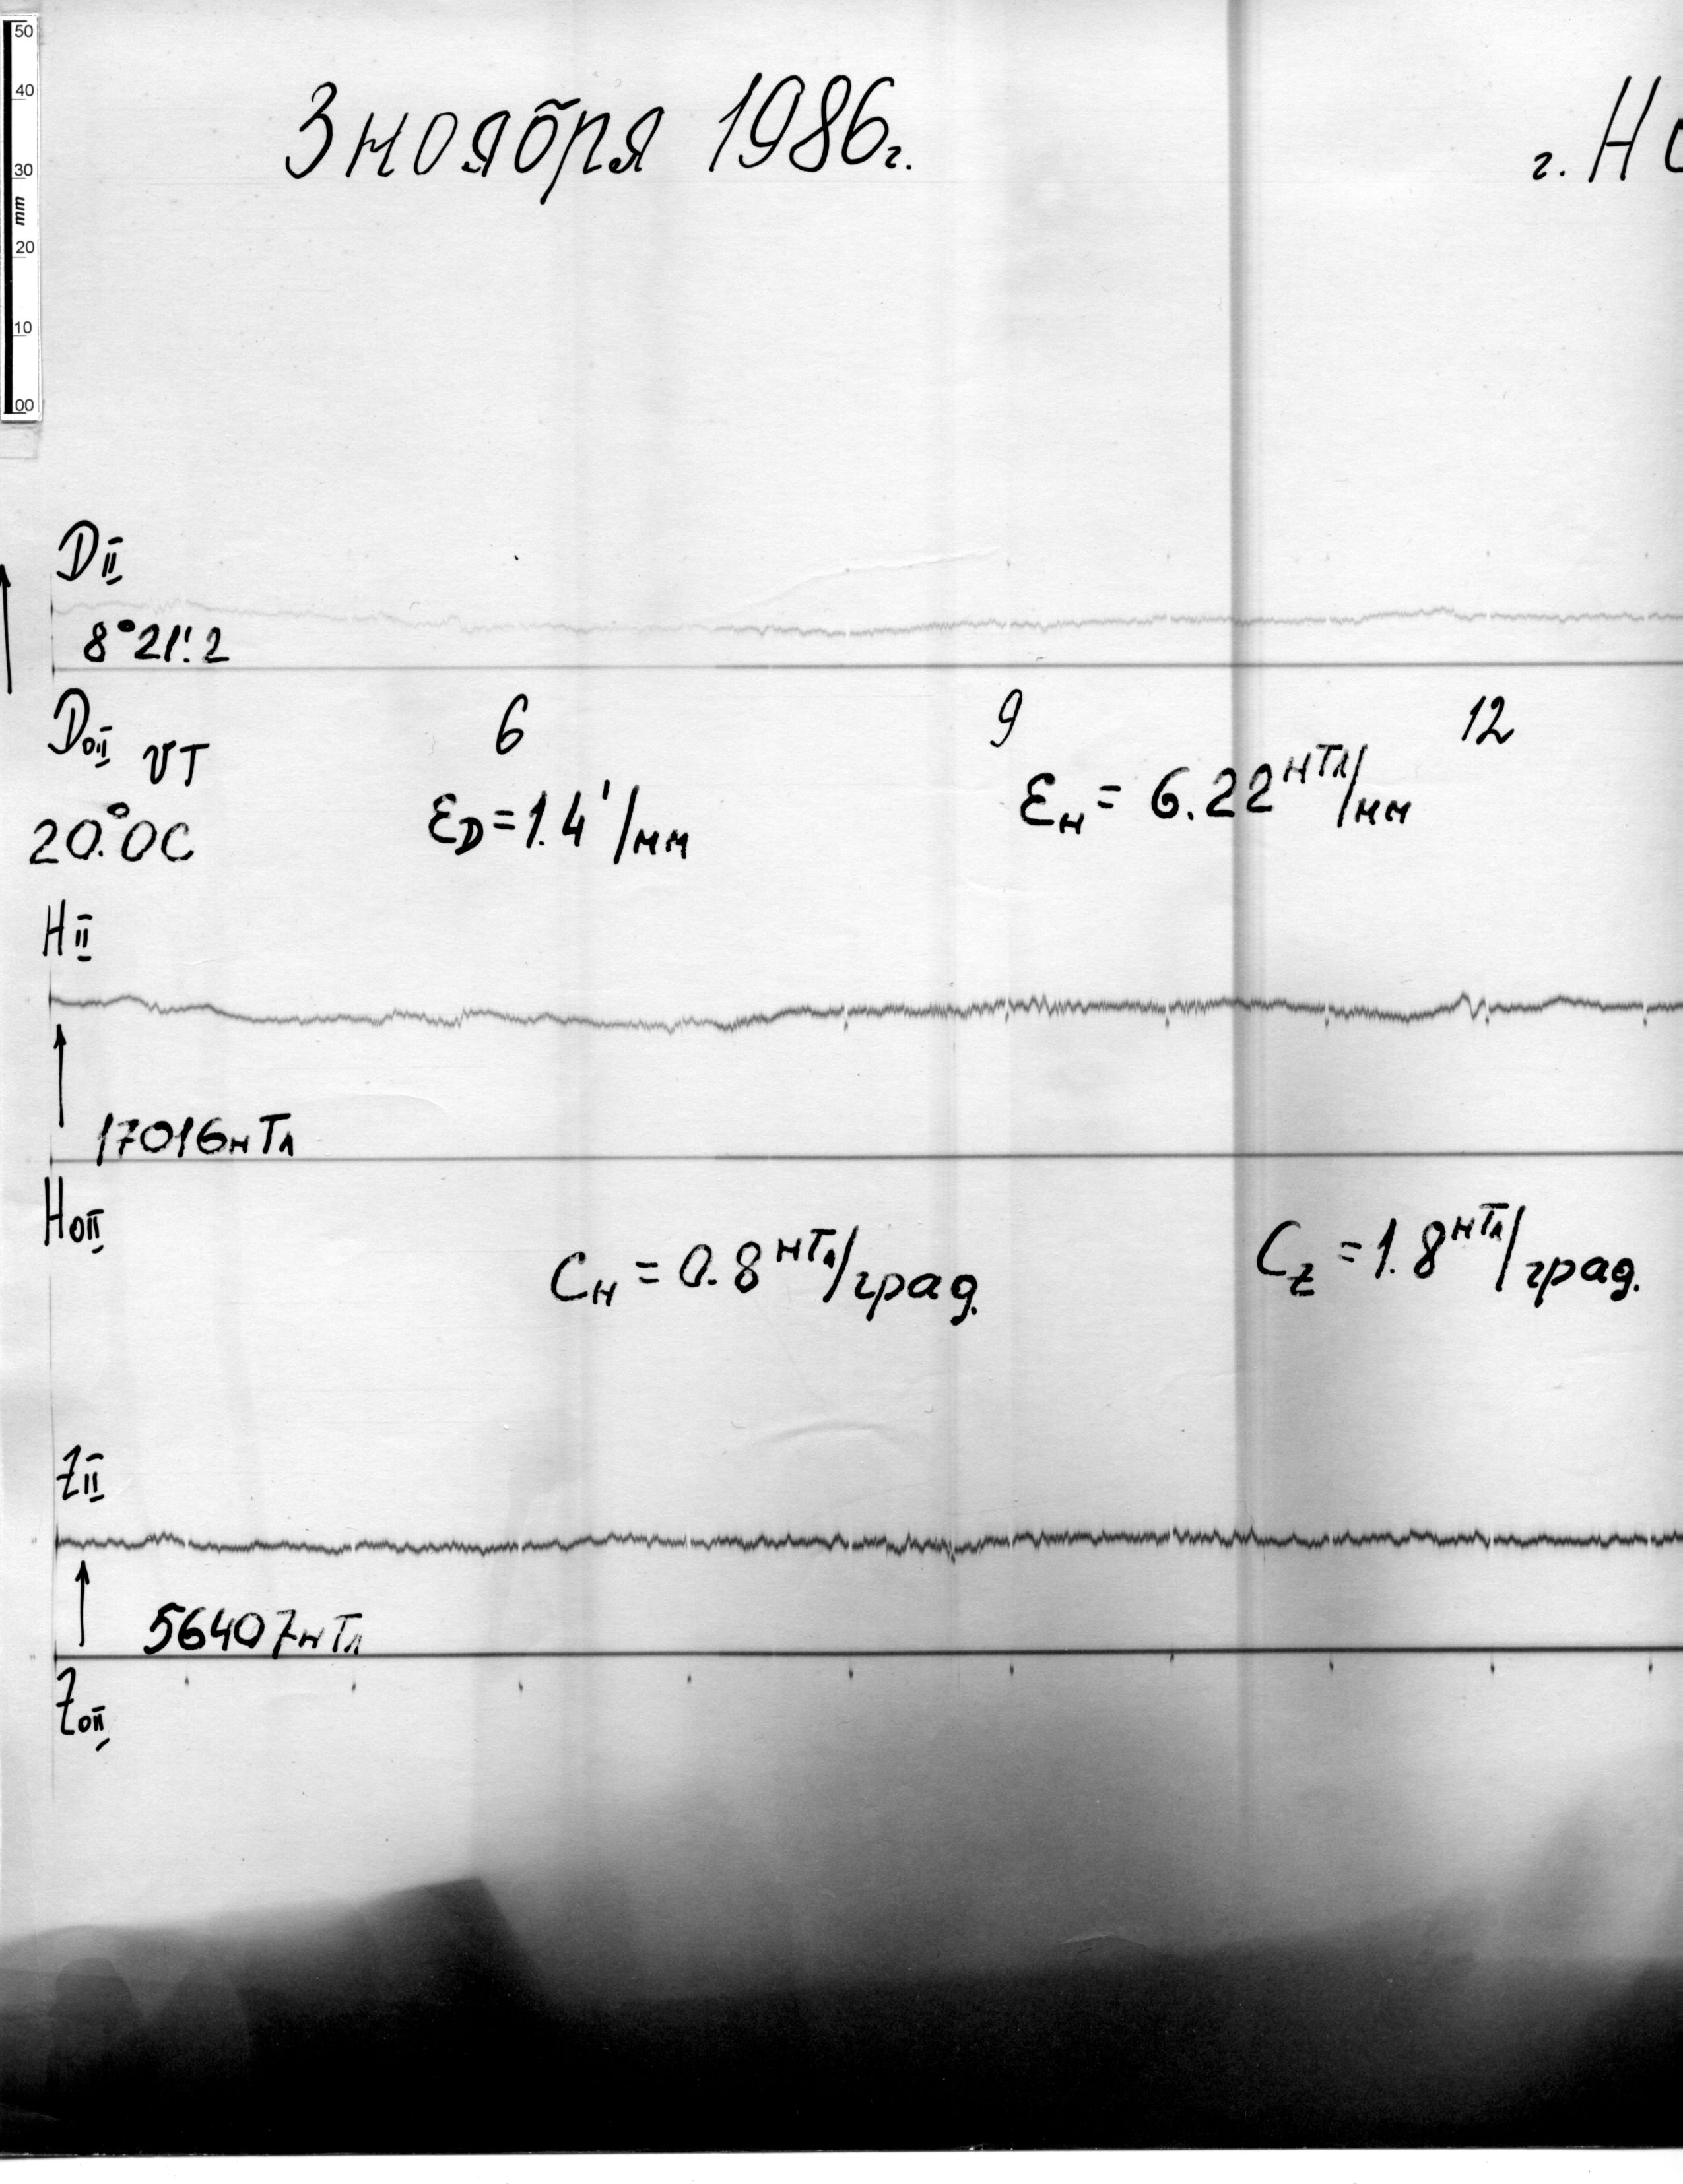 50
40
30
mm
20
10
00
3 ноября 1986г.
г. Но
DII
8°21!2
DoII UT
6
9
12
20.°0C
εD=1.4'/мм
εH= 6.22нТл/мм
HII
17016нТл
HoII
CH=0.8нТл/град.
CZ=1.8нТл/град.
ZII
56407нТл
ZoII